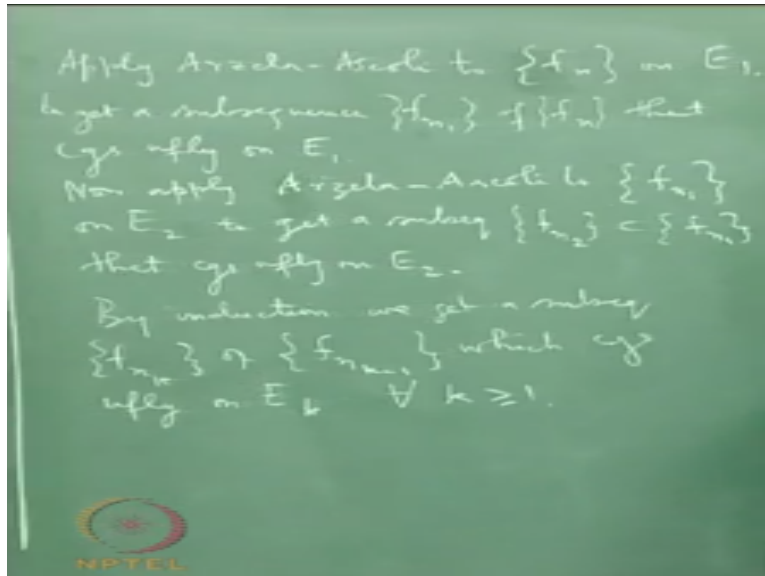 Apply Arzela-Ascoli to {f_n} on E_1.
to get a subsequence {f_{n_1}} of {f_n} that
cgs ufly on E_1.
Now apply Arzela-Ascoli to {f_{n_1}}
on E_2 to get a subseq {f_{n_2}} ⊂ {f_{n_1}}
that cgs ufly on E_2.
By induction we get a subseq
{f_{n_k}} of {f_{n_{k-1}}} which cgs
ufly on E_k ∀ k ≥ 1.
NPTEL